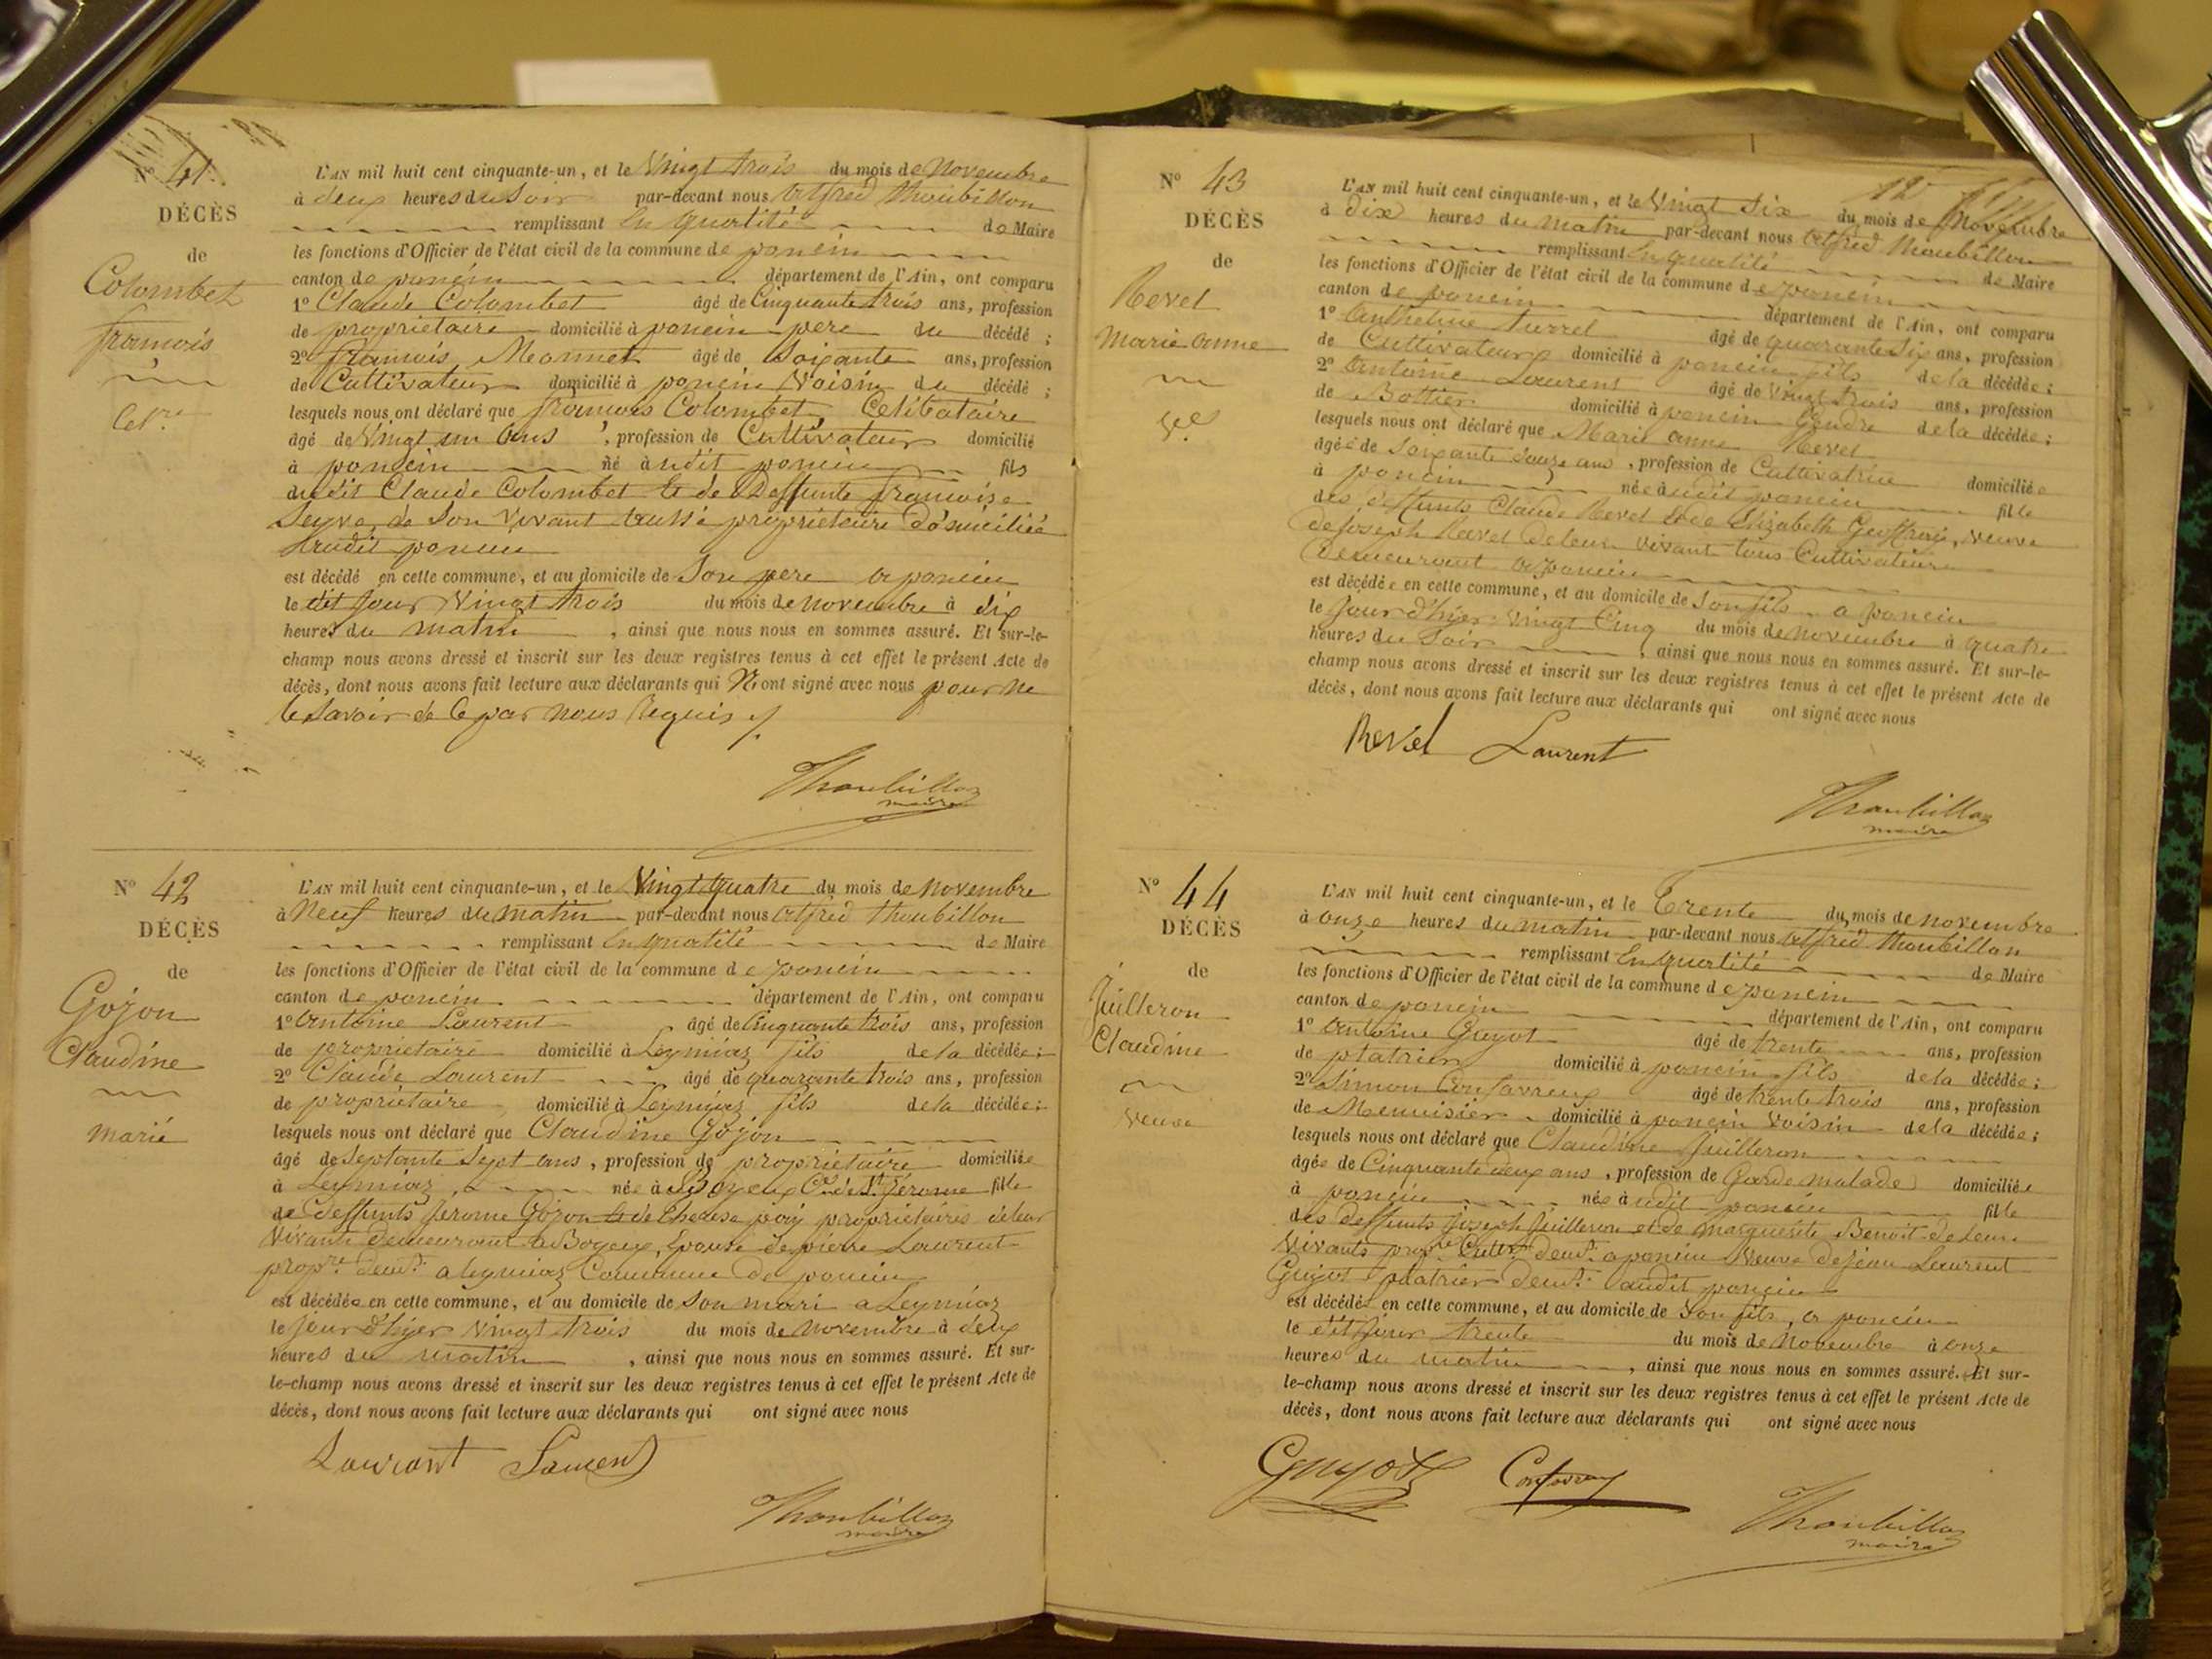 N° 41.
DÉCÈS
de
Colombet
françois
Cel.re
L'AN mil huit cent cinquante-un, et le Vingt trois du mois de Novembre
à deux heures du Soir par-devant nous Alfred Thoubillon
remplissant En qualité de Maire
les fonctions d'Officier de l'état civil de la commune de poncin
canton de poncin département de l'Ain, ont comparu
1° Claude Colombet âgé de Cinquante trois ans, profession
de propriétaire domicilié à poncin pere du décédé ;
2° françois Monnet âgé de Soixante ans, profession
de Cultivateur domicilié à poncin Voisin du décédé ;
lesquels nous ont déclaré que françois Colombet, Célibataire
âgé de Vingt un ans, profession de Cultivateur domicilié
à poncin né à udit poncin fils
dudit Claude Colombet Et de Deffunte françoise
Seyve, de Son Vivant aussi propriétaire Domiciliée
audit poncin
est décédé en cette commune, et au domicile de Son pere a poncin
le dit Jour Vingt trois du mois de Novembre à dix
heures du matin, ainsi que nous nous en sommes assuré. Et sur-le-
champ nous avons dressé et inscrit sur les deux registres tenus à cet effet le présent Acte de
décès, dont nous avons fait lecture aux déclarants qui N'ont signé avec nous pour ne
le Savoir de Ce par nous Requis ./.
Thoubillon
maire
N° 42
DÉCÈS
de
Gojon
Claudine
marié
L'AN mil huit cent cinquante-un, et le Vingt quatre du mois de Novembre
à Neuf heures du matin par-devant nous Alfred Thoubillon
remplissant En qualité de Maire
les fonctions d'Officier de l'état civil de la commune de poncin
canton de poncin département de l'Ain, ont comparu
1° Antoine Laurent âgé de Cinquante trois ans, profession
de propriétaire domicilié à Leymiaz fils de la décédée ;
2° Claude Laurent âgé de quarante trois ans, profession
de propriétaire domicilié à Leymiaz fils de la décédée ;
lesquels nous ont déclaré que Claudine Gojon
âgé de Septante Sept ans, profession de propriétaire domiciliée
à Leymiaz, née à Boyeux C.ne de S.t Jerome fille
de deffunts Jerome Gojon et de Therese poy propriétaires de leur
Vivant demeurant a Boyeux, Epouse de pierre Laurent
prop.re dem.t a Leymiaz Commune de poncin
est décédée en cette commune, et au domicile de Son mari a Leymiaz
le Jour d'hyer Vingt trois du mois de Novembre à deux
heures du matin, ainsi que nous nous en sommes assuré. Et sur-
le-champ nous avons dressé et inscrit sur les deux registres tenus à cet effet le présent Acte de
décès, dont nous avons fait lecture aux déclarants qui ont signé avec nous
Laurant Laurent
Thoubillon
maire
N° 43
DÉCÈS
de
Revel
Marie anne
L'AN mil huit cent cinquante-un, et le Vingt Six du mois de Novembre
à Dix heures du matin par-devant nous Alfred Thoubillon
remplissant En qualité de Maire
les fonctions d'Officier de l'état civil de la commune de poncin
canton de poncin département de l'Ain, ont comparu
1° Anthelme âgé de quarante Six ans, profession
de Cultivateur domicilié à poncin fils de la décédée ;
2° Antoine Laurent âgé de Vingt trois ans, profession
de Bottier domicilié à poncin Gendre de la décédée ;
lesquels nous ont déclaré que Marie anne Revel
âgée de Soixante douze ans, profession de Cultivatrice domiciliée
à poncin née à udit poncin fille
des deffunts Claude Revel et de Elizabeth Geoffray, veuve
de Joseph Revel de leur vivant tous Cultivateurs
demeurant a poncin
est décédée en cette commune, et au domicile de Son fils a poncin
le Jour d'hyer Vingt Cinq du mois de Novembre à quatre
heures du Soir, ainsi que nous nous en sommes assuré. Et sur-le-
champ nous avons dressé et inscrit sur les deux registres tenus à cet effet le présent Acte de
décès, dont nous avons fait lecture aux déclarants qui ont signé avec nous
Revel Laurent
Thoubillon
maire
N° 44
DÉCÈS
de
Juilleron
Claudine
veuve
L'AN mil huit cent cinquante-un, et le Trente du mois de Novembre
à Onze heures du matin par-devant nous Alfred Thoubillon
remplissant En qualité de Maire
les fonctions d'Officier de l'état civil de la commune de poncin
canton de poncin département de l'Ain, ont comparu
1° Antoine Guyot âgé de trente ans, profession
de platrier domicilié à poncin fils de la décédée ;
2° Simon Confavreux âgé de trente trois ans, profession
de Menuisier domicilié à poncin Voisin de la décédée ;
lesquels nous ont déclaré que Claudine Juilleron
âgée de Cinquante deux ans, profession de Garde malade domiciliée
à poncin née à udit poncin fille
des deffunts Joseph Juilleron et de Marguerite Benoit de leur
Vivants prop.re Cult.r dem.t a poncin Veuve de Jean Laurent
Guyot platrier dem.t audit poncin
est décédée en cette commune, et au domicile de Son fils, a poncin
le dit Jour trente du mois de Novembre à onze
heures du matin, ainsi que nous nous en sommes assuré. Et sur-
le-champ nous avons dressé et inscrit sur les deux registres tenus à cet effet le présent Acte de
décès, dont nous avons fait lecture aux déclarants qui ont signé avec nous
Guyot Confavreux
Thoubillon
maire